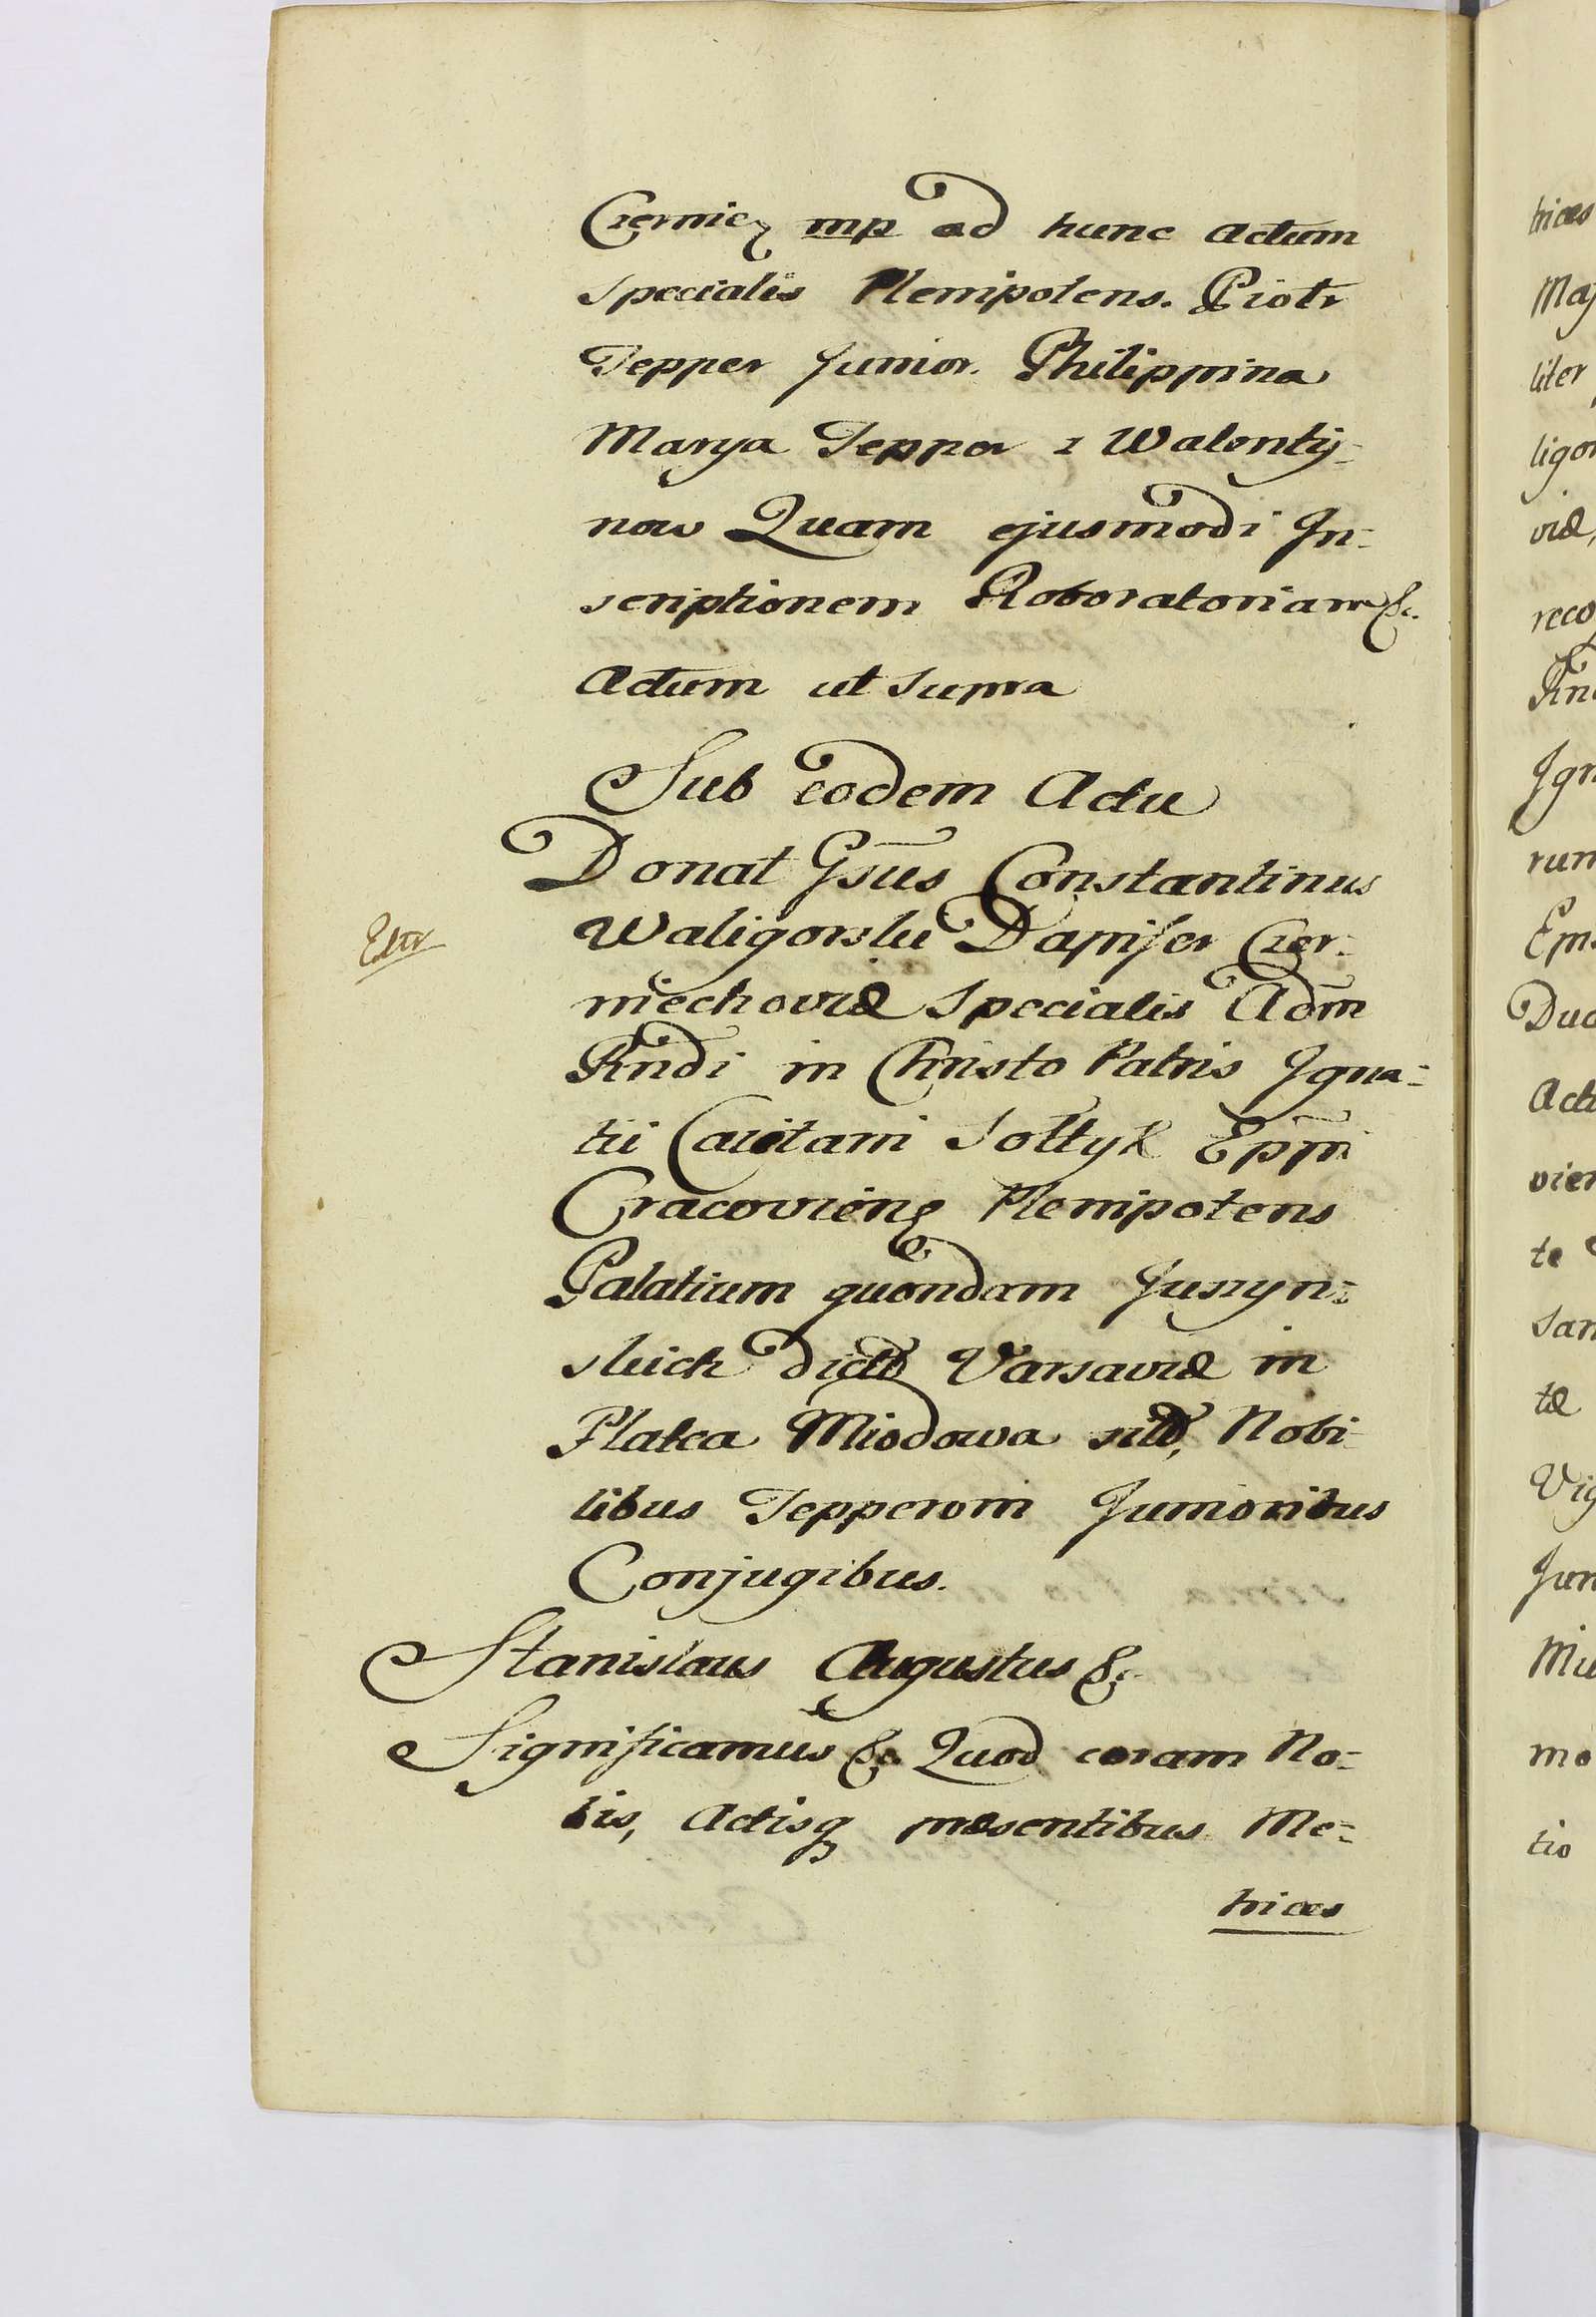 Czernic mp ad hunc actum
specialis Plenipotens. Piotr
Tepper Junior. Philippina
Marya Tepper z Walenty-
now Quam ejusmodi In-
scriptionem Roboratoriam &c.
Actum ut supra
Sub eodem Actu
Donat Gsus Constantinus
Waligorski Dapifer Czer-
Extr
niechoviæ specialis Adm
Rndi in Christo Patris Igna-
tii Caietani Sołtyk Eppi
Cracovien Plenipotens
Palatium quondam Juszyn-
skich dict Varsaviæ in
Platea Miodowa sit, Nobi
libus Tepperom Junioribus
Conjugibus.
Stanislaus Augustus &c
Significamus &c. Quod coram No-
bis, Actisq præsentibus Me-
trices
trices
Maj
liter
ligor
viæ,
reco
Rnd
Ign
rum
Duc
Act
vien
te
San
tæ
Vig
Jun
Mi
mo
tio